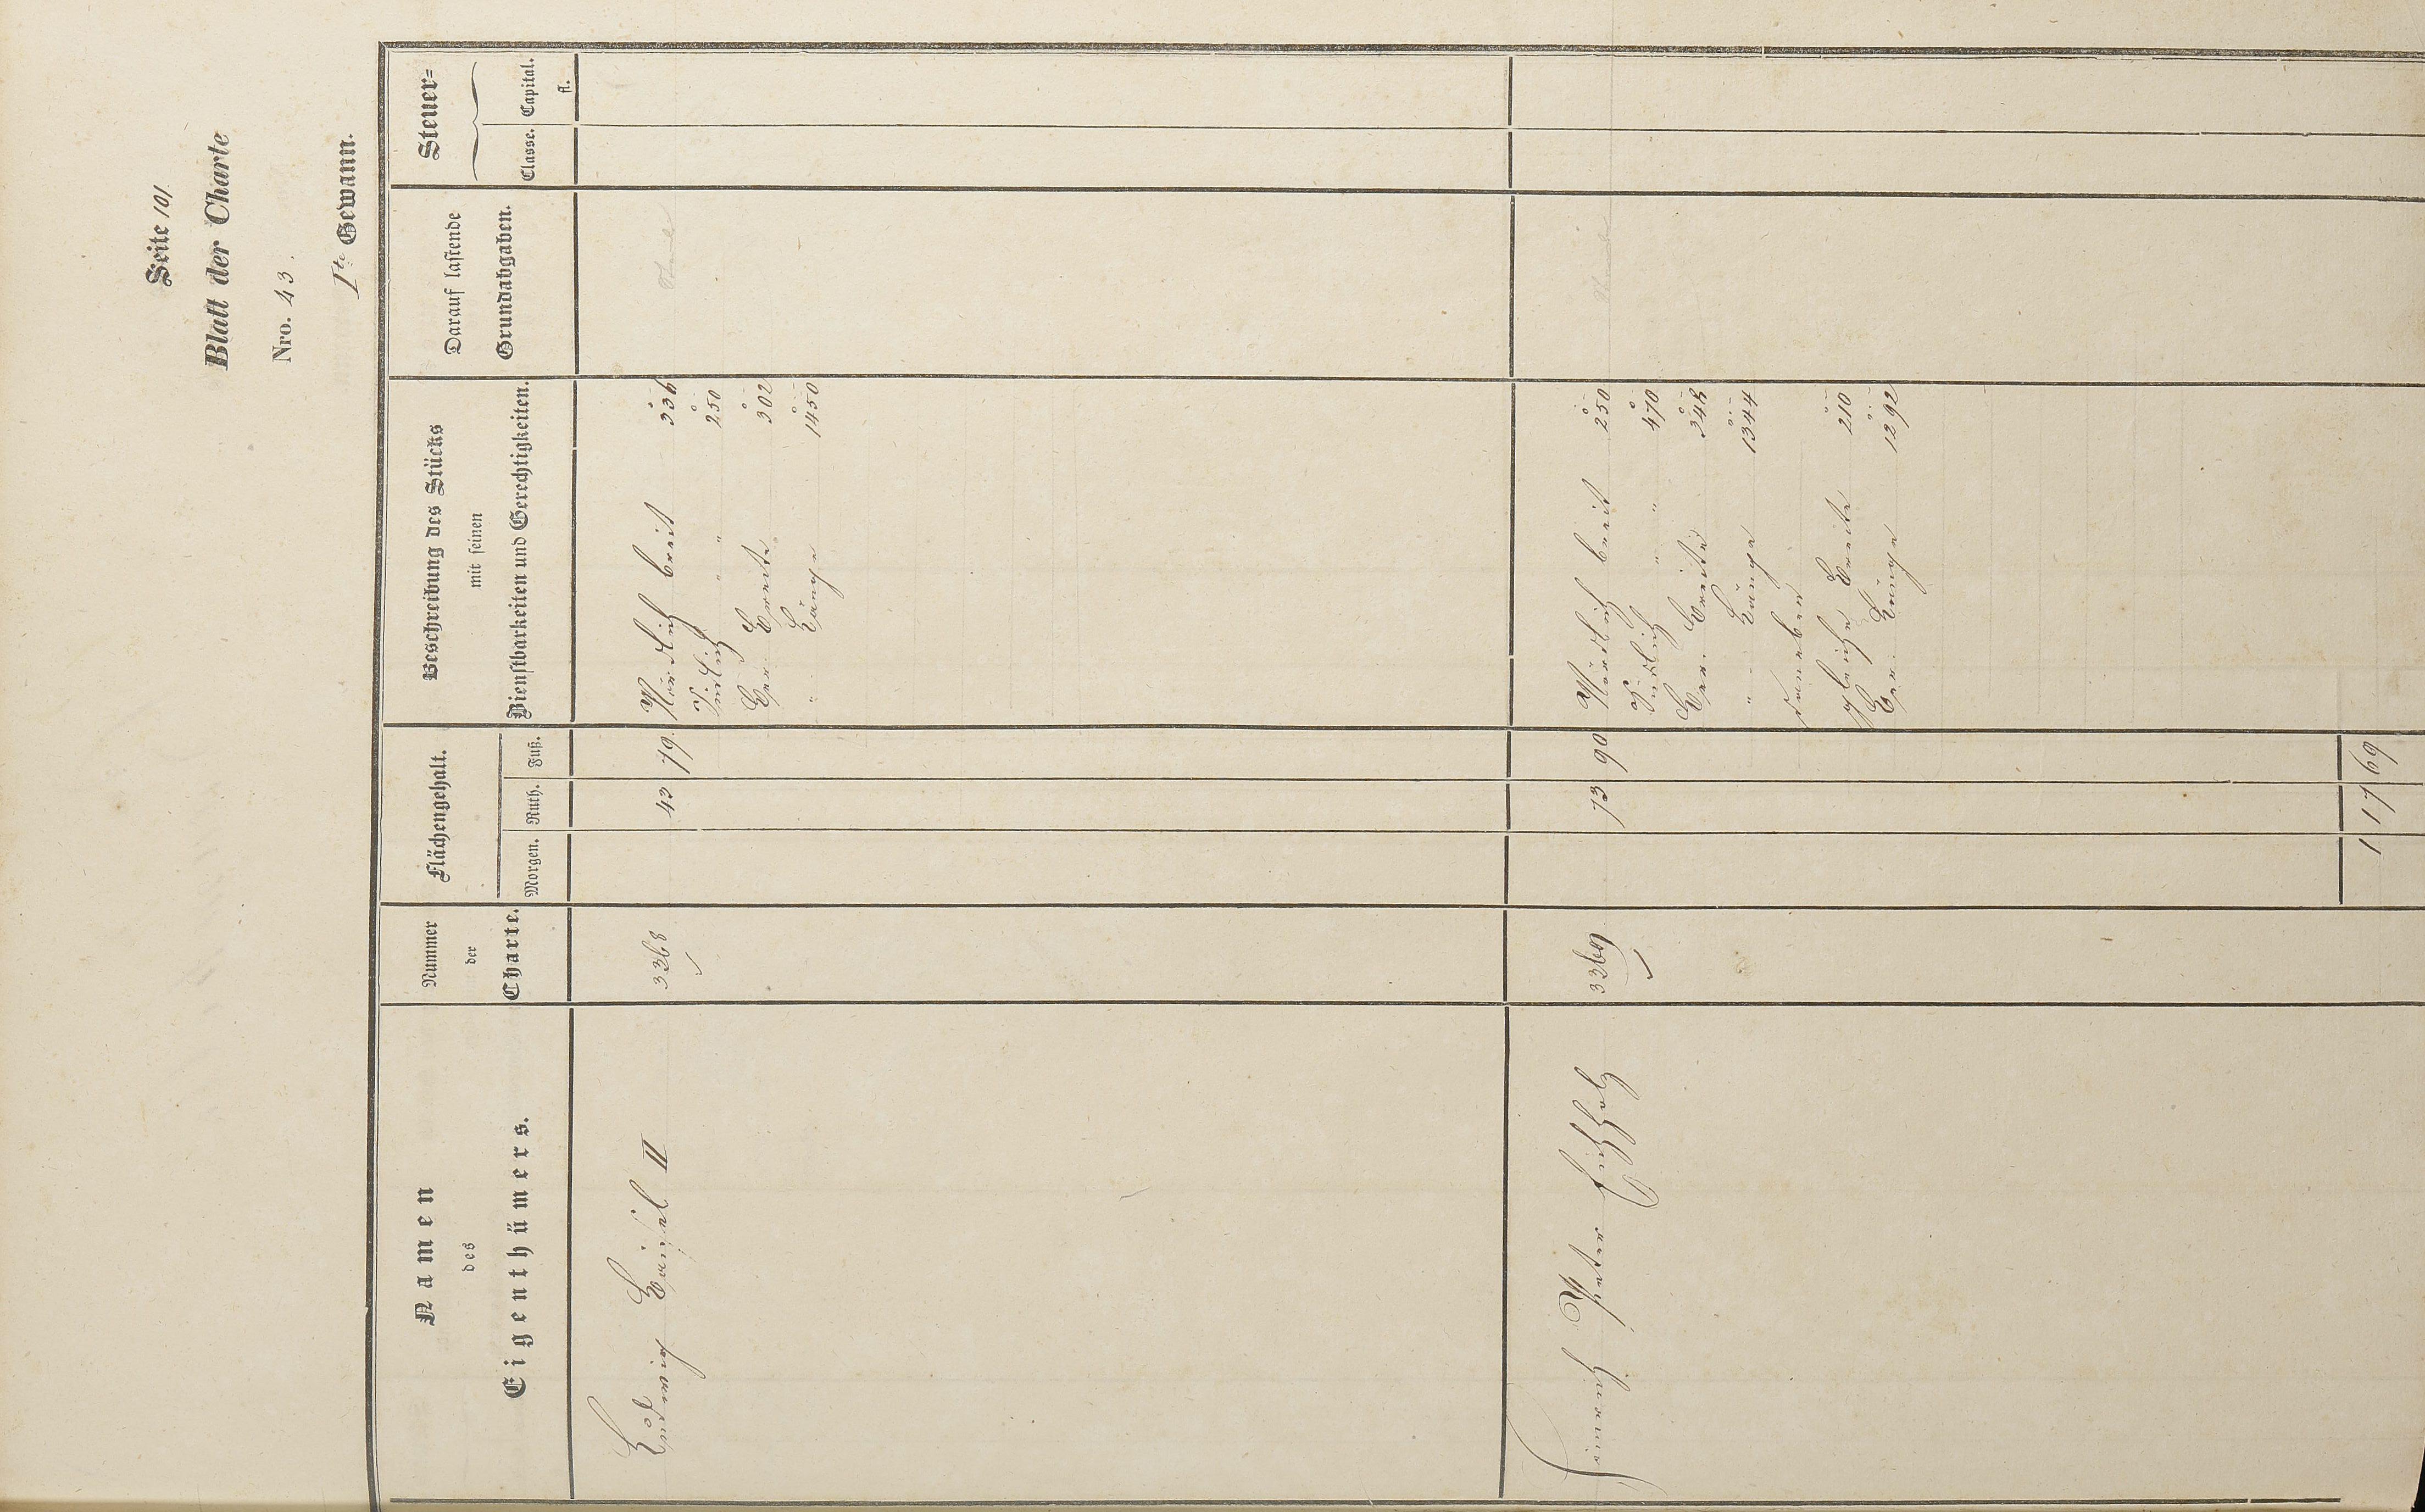 Seite 101.
Blatt der Charte
Nro. 43.
Ite Gewann.
Namen
des
Eigenthümers.
Nummer
der
Charte.
Flächengehalt.
Morgen. Ruth. Fuß.
Beschreibung des Stücks
mit seinen
Dienstbarkeiten und Gerechtigkeiten.
Darauf lastende
Grundabgaben.
Steuer=
Classe. Capital.
fl.
Ludewig II 3368 43 79. Nördlich breit 336
Südlich " " 250
Ger. Breite 302
" Länge 1450
Heinrich Peter Eichholz 3369 73 90 Nördlich breit 250
Südlich " " 470
Ger. Breite 348
" Länge 1344
daneben
gleiche Breite 210
Ger. Länge 1292
1 17 69